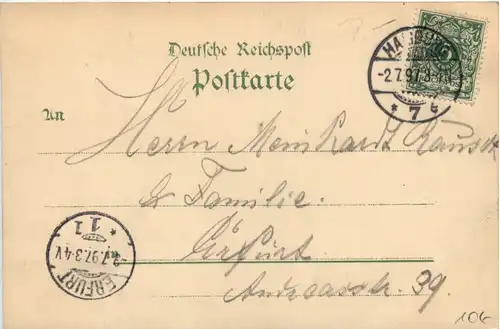 Deutsche Reichspost
Postkarte
HAMBURG
-2.7.97. 3-4 N
* 7 c
An
Herrn Meinhardt Rausch
& Familie.
Erfurt
Andreasstr. 39.
* 11
-3.7.97. 3-4 V
ERFURT
106